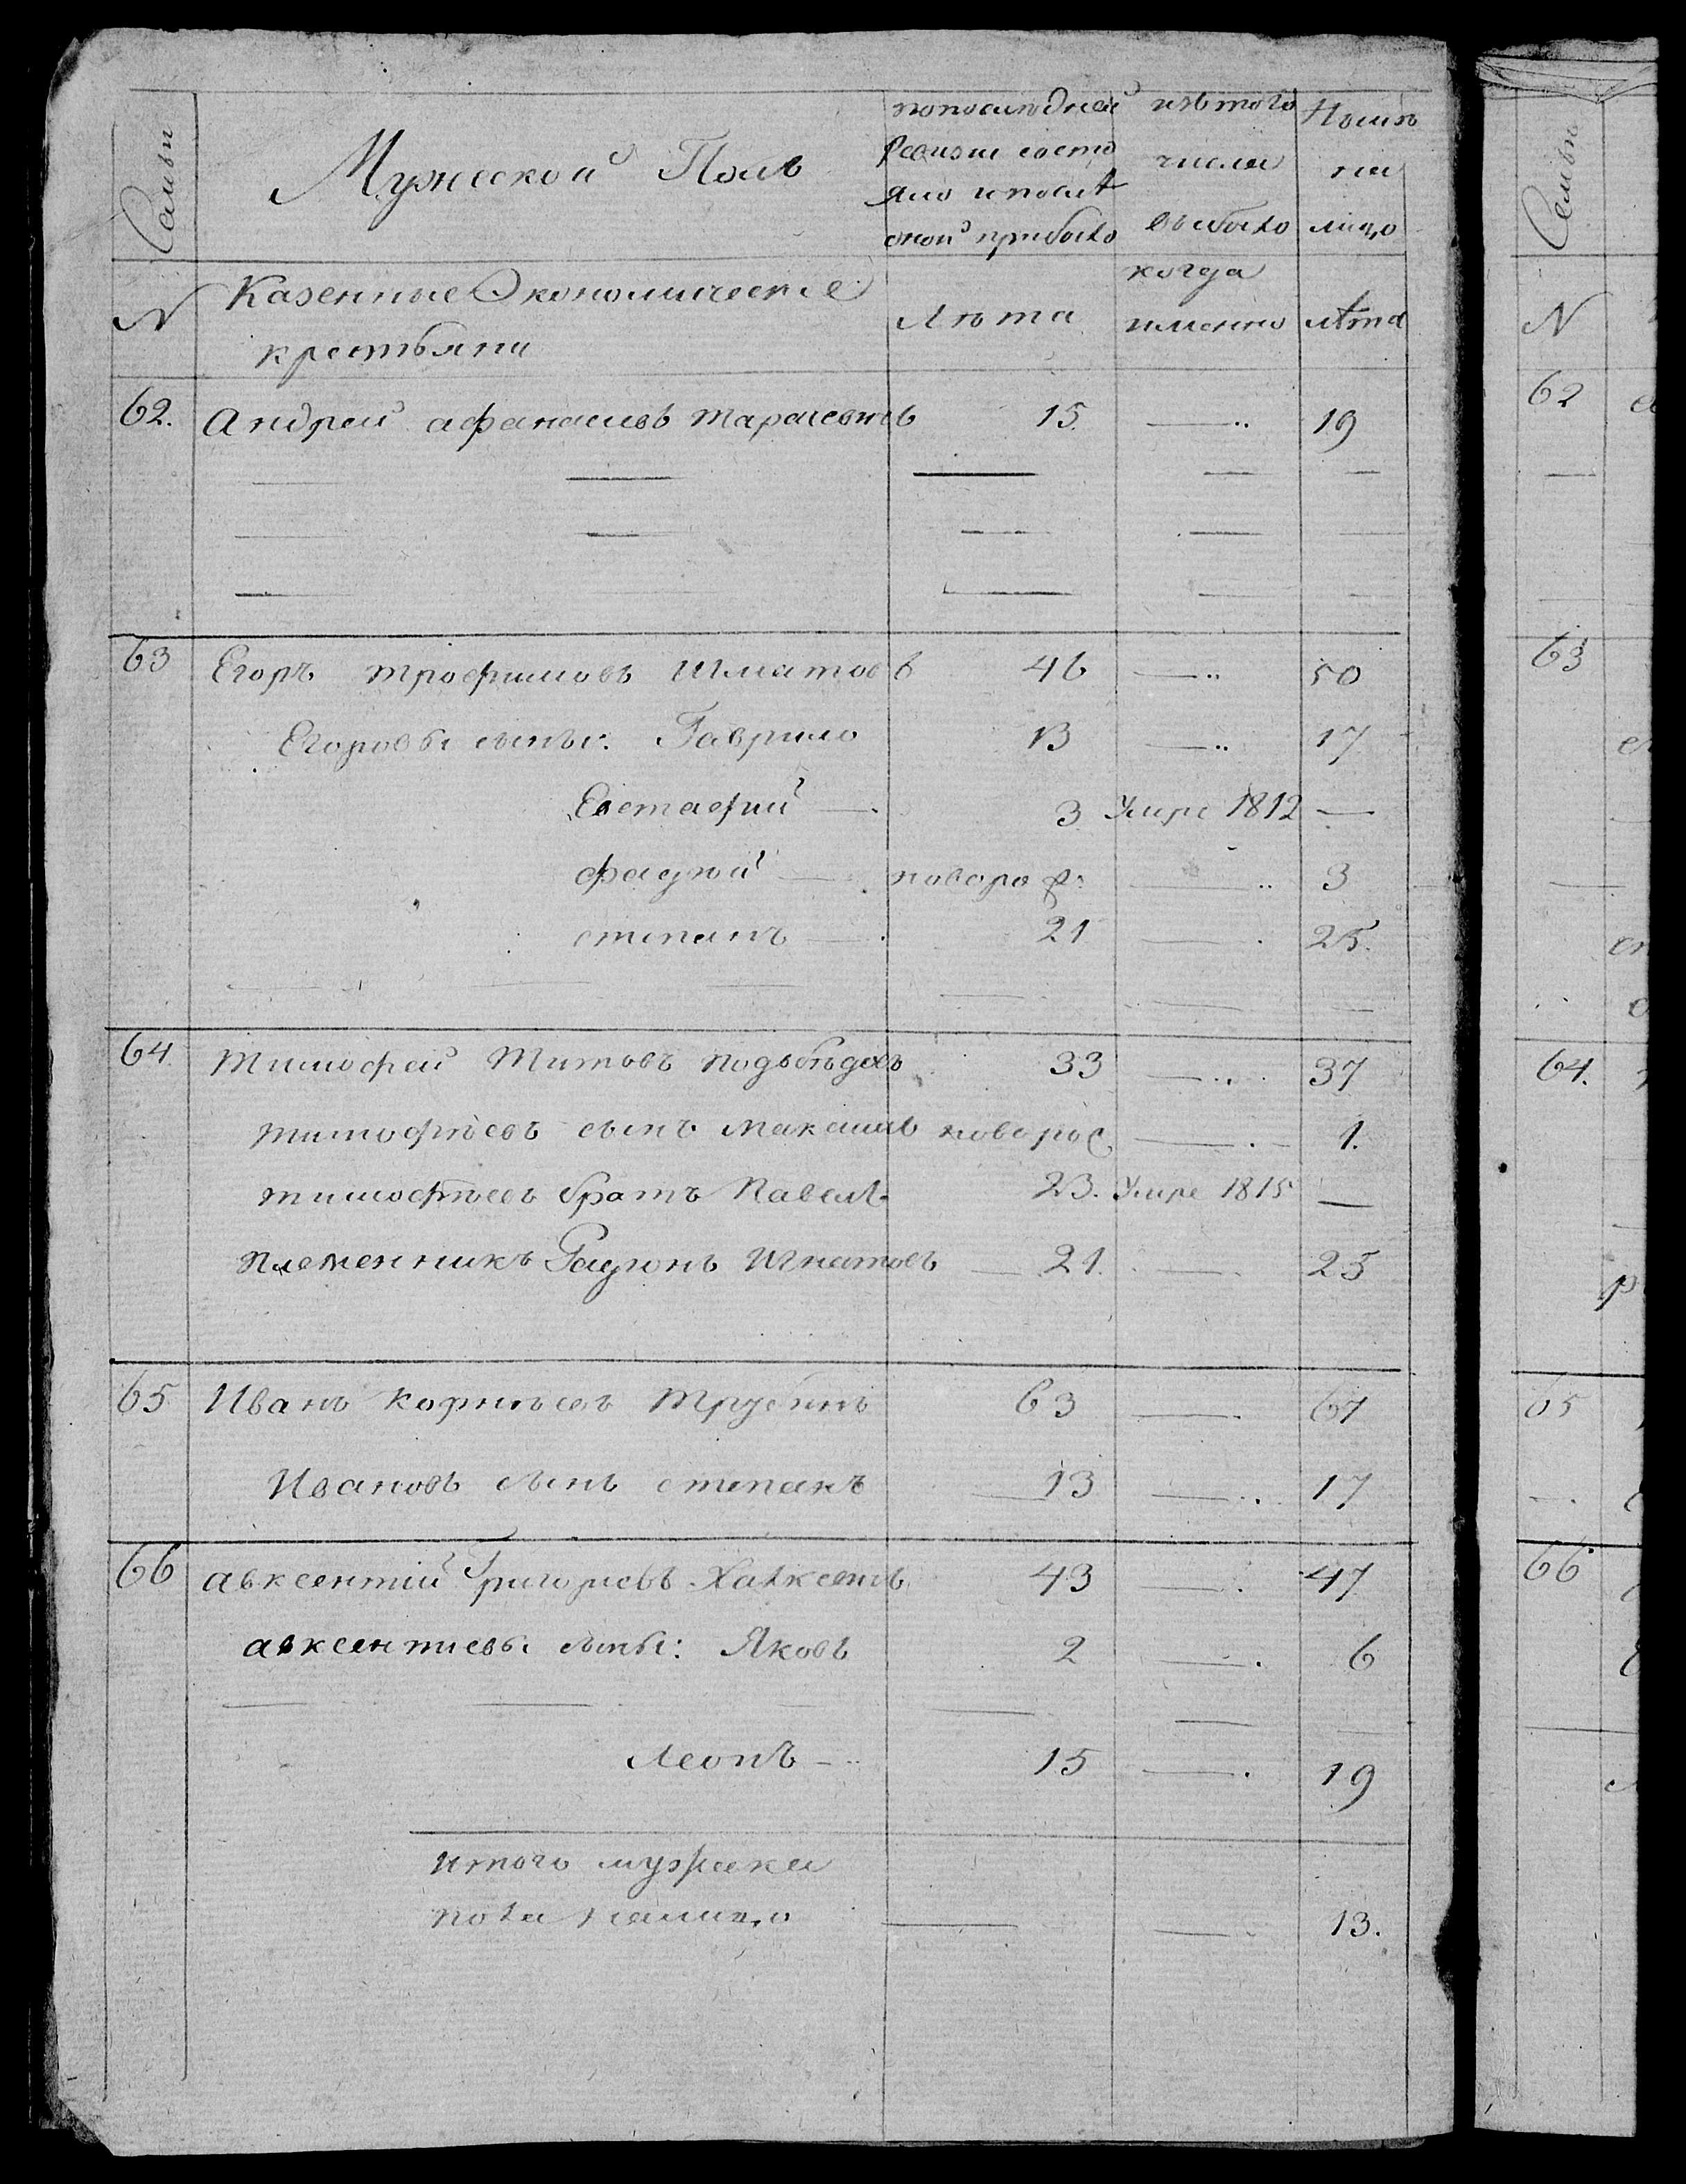 Семьи
Мужеской Полъ
попоследней
Ревизiи состо
яло ипосле
оной прибыло
изътого
числа
выбыло
Ныне
на
лицо
N
Казенные Экономические
крестьяни
Лѣта
когда
именно
лѣта
62. Андрей афанасьевъ 15. 19
63 Егоръ трофимовъ 46 50
Егоровы сыны: Гаврило 13 17
Евстафий 3 Умре 1812
фадѣй новоро 3
степанъ 21 25.
64. Тимофей Титовъ 33 37
тимофѣевъ сынъ максимъ поворос 1.
тимофѣевъ братъ Павелъ 23. Умре 1815
племенникъ Родионъ Игнатовъ 21. 25
65 Иванъ Корнѣевъ Трубинъ 63 67
Ивановъ сынъ степанъ 13 17
66 авксентiй Григорьевъ 43 47
авксентиевы сыны: Яковъ 2 6
Леонъ 15 19
итого мужска
пола налицо 13.
Семьи
N
62
63
64.
65
66